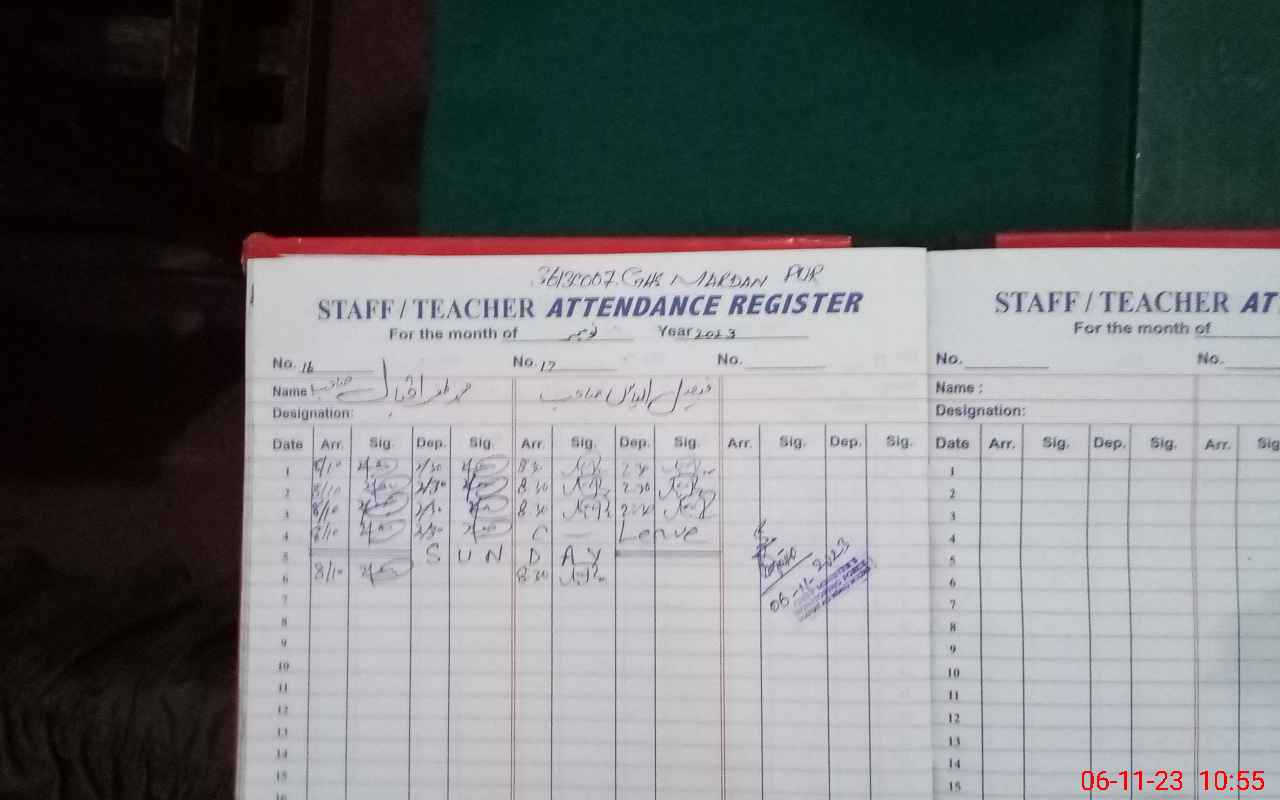 36130007. GHS MARDAN PUR
STAFF / TEACHER ATTENDANCE REGISTER
For the month of نومبر Year 2023
No. 16 No. 17 No.
Name محمد ظفر اقبال صاحب فیصل الیاس صاحب
Designation:
Date Arr. Sig. Dep. Sig. Arr. Sig. Dep. Sig. Arr. Sig. Dep. Sig.
1 8/10 2/30 8 30 2 30
2 8/10 2/30 8 30 2 30
3 8/10 2/30 8 30 2 30
4 8/10 2/30 C Leave
5 SUNDAY
6 8/10 8 30
06-11-2023
7
8
9
10
11
12
13
14
15
16
STAFF / TEACHER AT
For the month of
No. No.
Name :
Designation:
Date Arr. Sig. Dep. Sig. Arr. Sig
1
2
3
4
5
6
7
8
9
10
11
12
13
14
15
06-11-23 10:55